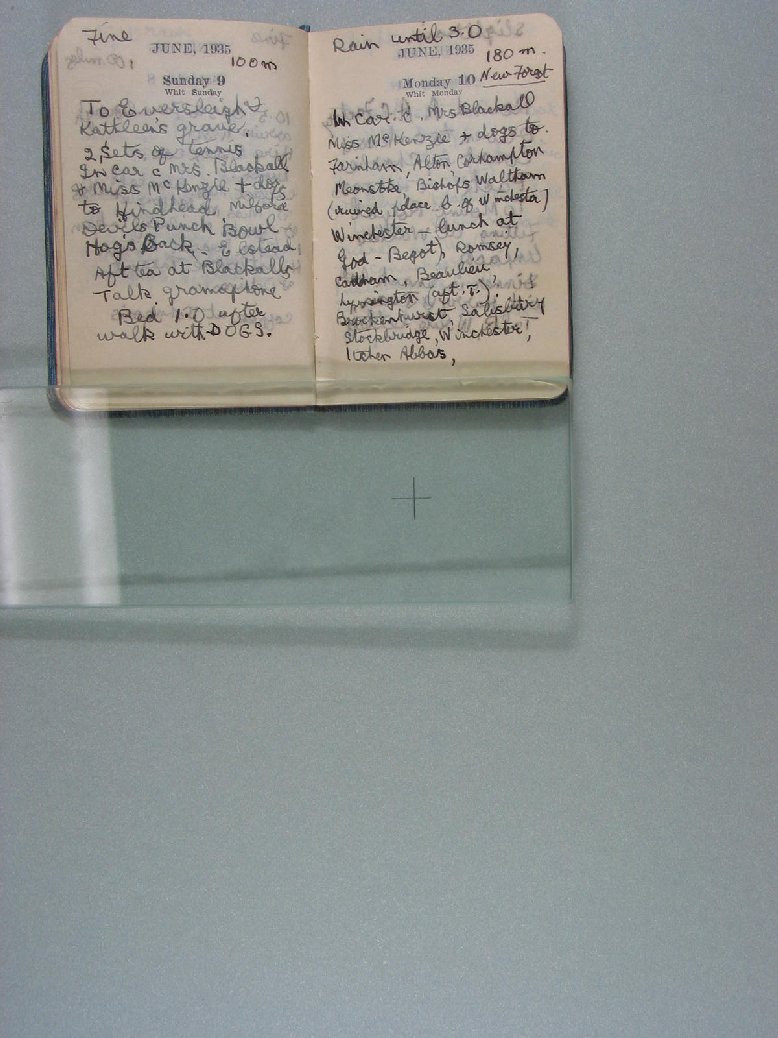 Fine
JUNE, 1935
100 m
Sunday 9
Whit Sunday
To Eversleigh &
Kathleen's grave.
2 sets of tennis
In car c Mrs. Blackall
& Miss McKenzie + dogs
to Hindhead, Milford
Devils Punch Bowl
Hogs Back. E Elstead
Aft tea at Blackalls
Talk gramophone
Bed 1.0 after
walk with DOGS.
Rain until 3.0
JUNE, 1935
180 m.
Monday 10 New Forest
Whit Monday
In Car. c. Mrs Blackall
Miss McKenzie + dogs to.
Farnham, Alton Corhampton
Meonstoke Bishops Waltham
(ruined palace B. of Winchester)
Winchester - lunch at
God - Begot) Romsey,
Cadnam, Beaulieu,
Lymington aft. T.),
Brockenhurst Salisbury
Stockbridge, Winchester,
Itchen Abbas,